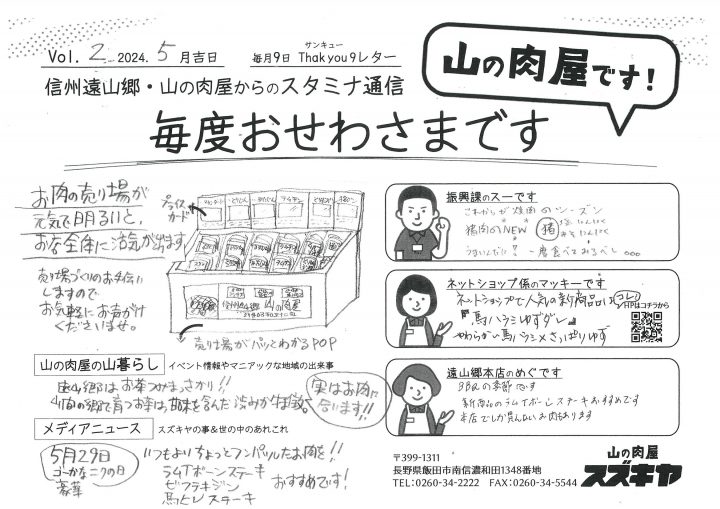 Vol. 2 2024. 5 月吉日
サンキュー
毎月9日 Thak you 9レター
信州遠山郷・山の肉屋からのスタミナ通信
山の肉屋です!
毎度おせわさまです
お肉の売り場が
元気で明るいと、
お店全体に活気が出ます。
売り場づくりのお手伝い
しますので
お気軽にお声がけ
くださいませ。
プライス
カード
山の肉屋
売り場がパッとわかるPOP
振興課のスーです
これからが焼肉のシーズン
猪肉のNEW 猪
ネットショップ係のマッキーです
ネットショップで人気の新商品はコレ!
HPはコチラから
『馬ハラミゆずダレ』
やわらかい馬ハラミとさっぱりゆず
遠山郷本店のめぐです
BBQの季節です
新商品のラムTボーンステーキおすすめです
本店でしか買えないお肉もあります
山の肉屋の山暮らし イベント情報やマニアックな地域の出来事
遠山郷はお茶つみまっさかり!!
山間の郷で育つお茶は、甘味を含んだ渋みが特徴。
実はお肉に
合います!!
メディアニュース スズキヤの事&世の中のあれこれ
5月29日
ゴーカなニクの日
豪華
いつもよりちょっとフンパツしたお肉を!!
ラムTボーンステーキ
ビフテキジン
馬ヒレステーキ
おすすめです!
〒399-1311
長野県飯田市南信濃和田1348番地
TEL:0260-34-2222 FAX:0260-34-5544
山の肉屋
スズキヤ